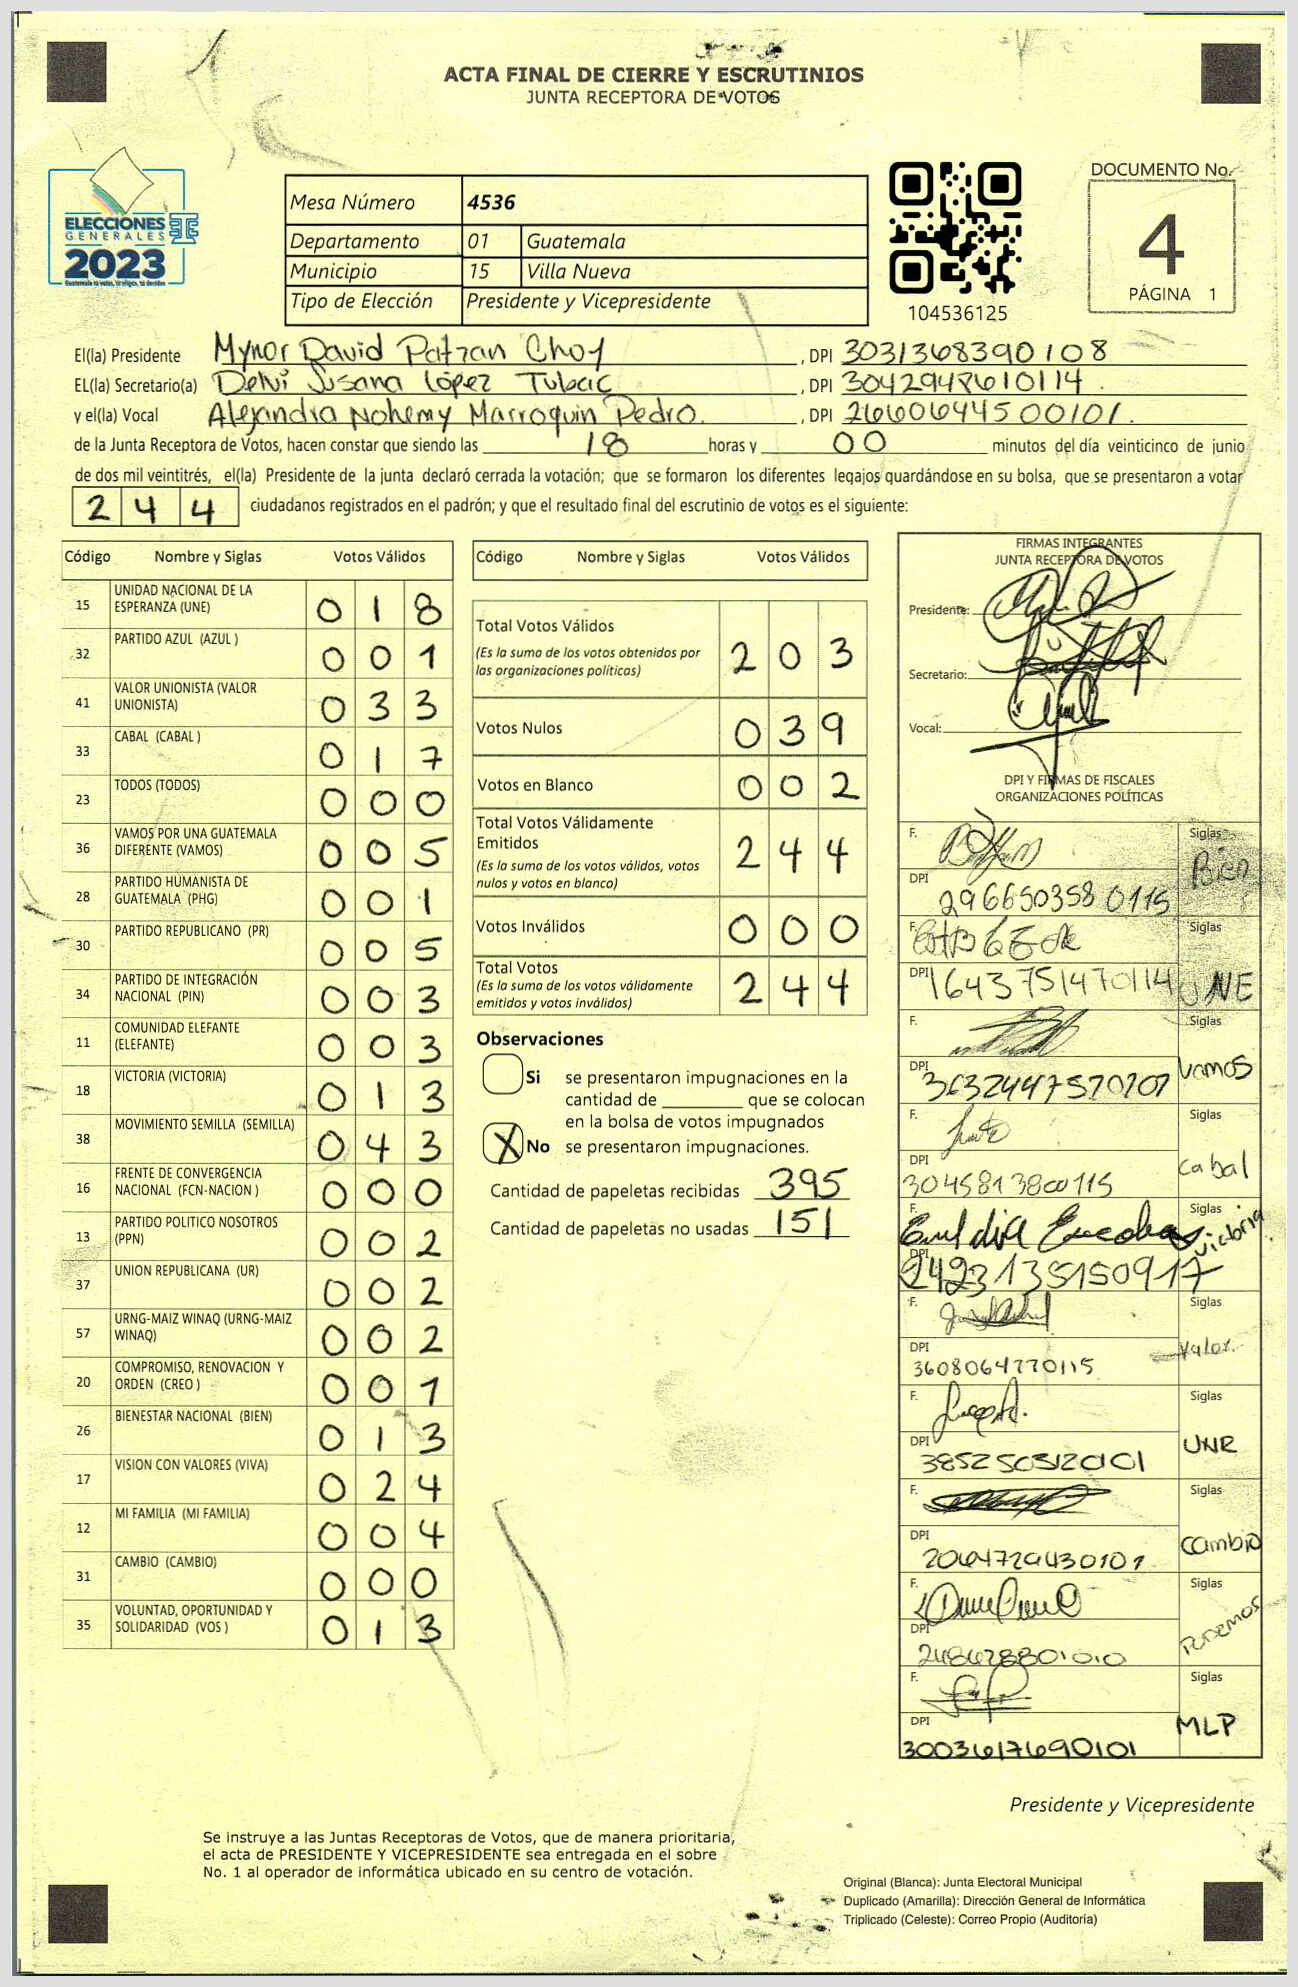 ACTA FINAL DE CIERRE Y ESCRUTINIOS
JUNTA RECEPTORA DE VOTOS
ELECCIONES
GENERALES
2023
Guatemala tú votas, tú eliges, tú decides
Mesa Número 4536
Departamento 01 Guatemala
Municipio 15 Villa Nueva
Tipo de Elección Presidente y Vicepresidente
104536125
DOCUMENTO No.
4
PÁGINA 1
El(la) Presidente Mynor David Patzan Choy, DPI 3031368390108
EL(la) Secretario(a) Delvi Susana López Tubac, DPI 3042948610114.
y el(la) Vocal Alejandra Nohemy Marroquin Pedro., DPI 2660644500101.
de la Junta Receptora de Votos, hacen constar que siendo las 18 horas y 00 minutos del día veinticinco de junio
de dos mil veintitrés, el(la) Presidente de la junta declaró cerrada la votación; que se formaron los diferentes legajos guardándose en su bolsa, que se presentaron a votar
244 ciudadanos registrados en el padrón; y que el resultado final del escrutinio de votos es el siguiente:
Código Nombre y Siglas Votos Válidos
15 UNIDAD NACIONAL DE LA
ESPERANZA (UNE) 018
32 PARTIDO AZUL (AZUL ) 001
41 VALOR UNIONISTA (VALOR
UNIONISTA) 033
33 CABAL (CABAL ) 017
23 TODOS (TODOS) 000
36 VAMOS POR UNA GUATEMALA
DIFERENTE (VAMOS) 005
28 PARTIDO HUMANISTA DE
GUATEMALA (PHG) 001
30 PARTIDO REPUBLICANO (PR) 005
34 PARTIDO DE INTEGRACIÓN
NACIONAL (PIN) 003
11 COMUNIDAD ELEFANTE
(ELEFANTE) 003
18 VICTORIA (VICTORIA) 013
38 MOVIMIENTO SEMILLA (SEMILLA) 043
16 FRENTE DE CONVERGENCIA
NACIONAL (FCN-NACION ) 000
13 PARTIDO POLITICO NOSOTROS
(PPN) 002
37 UNION REPUBLICANA (UR) 002
57 URNG-MAIZ WINAQ (URNG-MAIZ
WINAQ) 002
20 COMPROMISO, RENOVACION Y
ORDEN (CREO ) 001
26 BIENESTAR NACIONAL (BIEN) 013
17 VISION CON VALORES (VIVA) 024
12 MI FAMILIA (MI FAMILIA) 004
31 CAMBIO (CAMBIO) 000
35 VOLUNTAD, OPORTUNIDAD Y
SOLIDARIDAD (VOS ) 013
Código Nombre y Siglas Votos Válidos
Total Votos Válidos
(Es la suma de los votos obtenidos por
las organizaciones políticas) 203
Votos Nulos 039
Votos en Blanco 002
Total Votos Válidamente
Emitidos
(Es la suma de los votos válidos, votos
nulos y votos en blanco) 244
Votos Inválidos 000
Total Votos
(Es la suma de los votos válidamente
emitidos y votos inválidos) 244
Observaciones
Si se presentaron impugnaciones en la
cantidad de ________ que se colocan
en la bolsa de votos impugnados
X No se presentaron impugnaciones.
Cantidad de papeletas recibidas 395
Cantidad de papeletas no usadas 151
FIRMAS INTEGRANTES
JUNTA RECEPTORA DE VOTOS
Presidente:
Secretario:
Vocal:
DPI Y FIRMAS DE FISCALES
ORGANIZACIONES POLÍTICAS
F. Siglas Bien
DPI 2966503580115
F. Siglas UNE
DPI 1643751470114
F. Siglas Vamos
DPI
F. Siglas Cabal
DPI 3045813800115
F. Siglas Victoria
DPI 2423135150917
F. Siglas Valor.
DPI 3608064770115
F. Siglas UNR
DPI 3852503120101
F. Siglas Cambio
DPI 2064729430101
F. Siglas Podemos
DPI
F. Siglas MLP
DPI 3003617690101
Presidente y Vicepresidente
Se instruye a las Juntas Receptoras de Votos, que de manera prioritaria,
el acta de PRESIDENTE Y VICEPRESIDENTE sea entregada en el sobre
No. 1 al operador de informática ubicado en su centro de votación.
Original (Blanca): Junta Electoral Municipal
Duplicado (Amarilla): Dirección General de Informática
Triplicado (Celeste): Correo Propio (Auditoría)